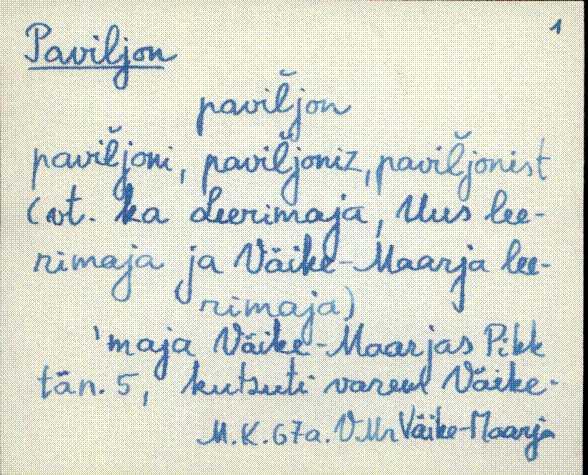 1
Paviljon
pavil̆jon
pavil̆joni, pavil̆joniz, pavil̆jonist
(vt. ka Leerimaja, Uus lee-
rimaja ja Väike-Maarja lee-
rimaja)
'maja Väike-Maarjas Pikk
tän. 5, kutsuti varem Väike-
M.K. 67a. VMr Väike-Maarja